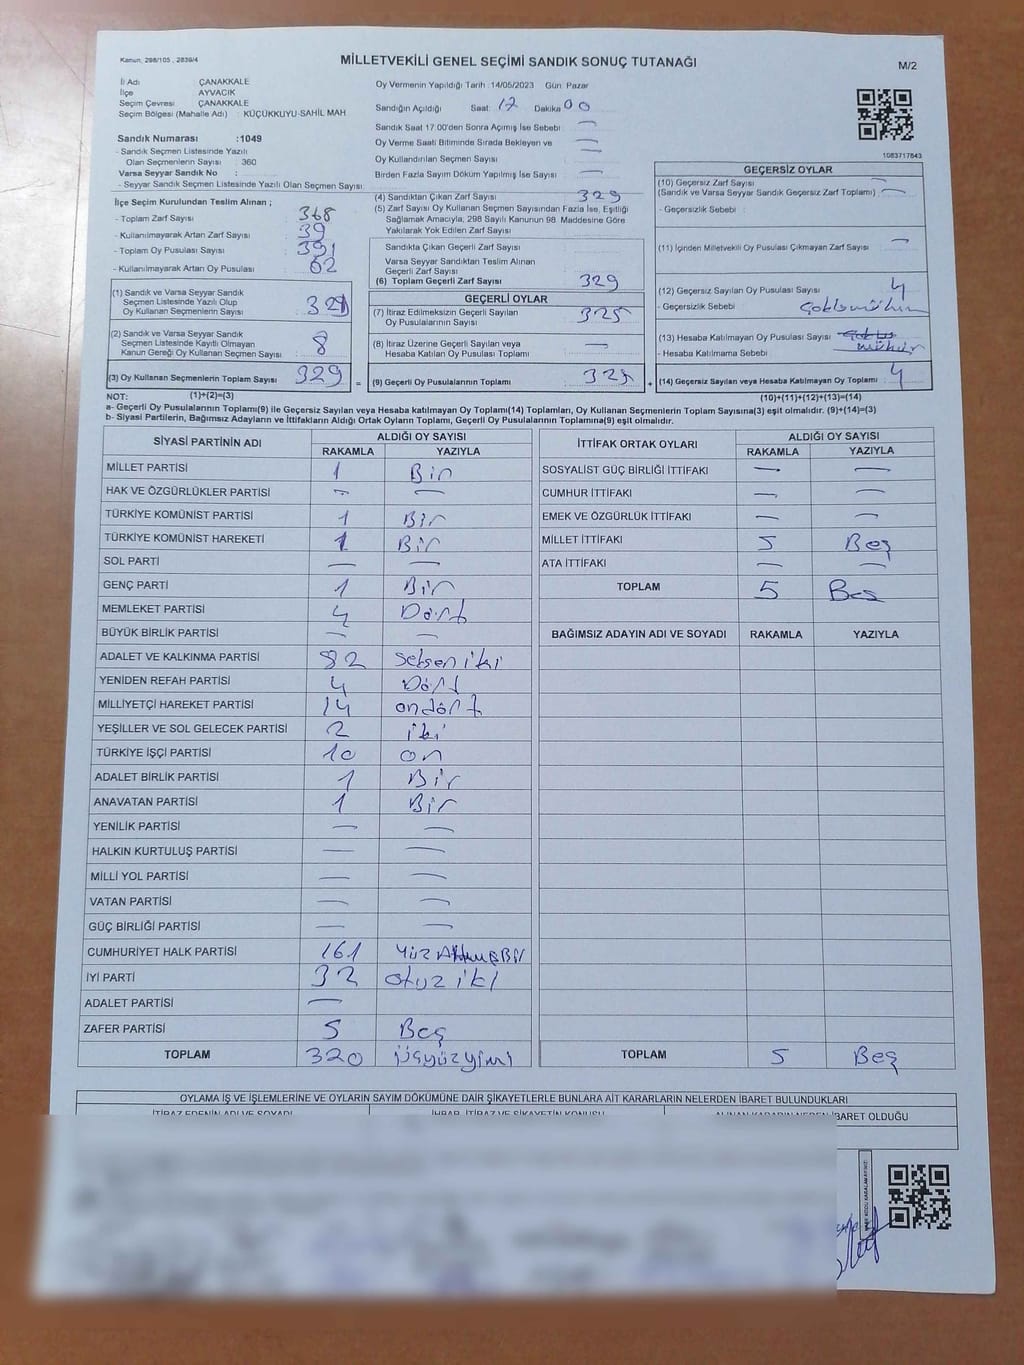 Kanun, 298/105 , 2839/4
MİLLETVEKİLİ GENEL SEÇİMİ SANDIK SONUÇ TUTANAĞI
M/2
İl Adı ÇANAKKALE
İlçe AYVACIK
Seçim Çevresi ÇANAKKALE
Seçim Bölgesi (Mahalle Adı) : KÜÇÜKKUYU-SAHİL MAH
Sandık Numarası :1049
- Sandık Seçmen Listesinde Yazılı
Olan Seçmenlerin Sayısı : 360
Varsa Seyyar Sandık No :
- Seyyar Sandık Seçmen Listesinde Yazılı Olan Seçmen Sayısı
İlçe Seçim Kurulundan Teslim Alınan ;
- Toplam Zarf Sayısı : 368
- Kullanılmayarak Artan Zarf Sayısı : 39
- Toplam Oy Pusulası Sayısı : 391
- Kullanılmayarak Artan Oy Pusulası : 62
(1) Sandık ve Varsa Seyyar Sandık
Seçmen Listesinde Yazılı Olup
Oy Kullanan Seçmenlerin Sayısı : 321
(2) Sandık ve Varsa Seyyar Sandık
Seçmen Listesinde Kayıtlı Olmayan
Kanun Gereği Oy Kullanan Seçmen Sayısı : 8
(3) Oy Kullanan Seçmenlerin Toplam Sayısı : 329 =
Oy Vermenin Yapıldığı Tarih :14/05/2023 Gün: Pazar
Sandığın Açıldığı Saat: 17 Dakika: 00
Sandık Saat 17.00'den Sonra Açımış İse Sebebi : —
Oy Verme Saati Bitiminde Sırada Bekleyen ve —
Oy Kullandırılan Seçmen Sayısı : —
Birden Fazla Sayım Döküm Yapılmış İse Sayısı : —
(4) Sandıktan Çıkan Zarf Sayısı : 329
(5) Zarf Sayısı Oy Kullanan Seçmen Sayısından Fazla İse, Eşitliği
Sağlamak Amacıyla, 298 Sayılı Kanunun 98. Maddesine Göre
Yakılarak Yok Edilen Zarf Sayısı :
Sandıkta Çıkan Geçerli Zarf Sayısı
Varsa Seyyar Sandıktan Teslim Alınan
Geçerli Zarf Sayısı
(6) Toplam Geçerli Zarf Sayısı : 329
GEÇERLİ OYLAR
(7) İtiraz Edilmeksizin Geçerli Sayılan
Oy Pusulalarının Sayısı : 325
(8) İtiraz Üzerine Geçerli Sayılan veya
Hesaba Katılan Oy Pusulası Toplamı : —
(9) Geçerli Oy Pusulalarının Toplamı : 325 +
1083717843
GEÇERSİZ OYLAR
(10) Geçersiz Zarf Sayısı : —
(Sandık ve Varsa Seyyar Sandık Geçersiz Zarf Toplamı) —
- Geçersizlik Sebebi :
(11) İçinden Milletvekili Oy Pusulası Çıkmayan Zarf Sayısı : —
(12) Geçersiz Sayılan Oy Pusulası Sayısı : 4
- Geçersizlik Sebebi :
(13) Hesaba Katılmayan Oy Pusulası Sayısı :
- Hesaba Katılmama Sebebi : mühür
(14) Geçersiz Sayılan veya Hesaba Katılmayan Oy Toplamı : 4
NOT: (1)+(2)=(3) (10)+(11)+(12)+(13)=(14)
a- Geçerli Oy Pusulalarının Toplamı(9) ile Geçersiz Sayılan veya Hesaba katılmayan Oy Toplamı(14) Toplamları, Oy Kullanan Seçmenlerin Toplam Sayısına(3) eşit olmalıdır. (9)+(14)=(3)
b- Siyasi Partilerin, Bağımsız Adayların ve İttifakların Aldığı Ortak Oyların Toplamı, Geçerli Oy Pusulalarının Toplamına(9) eşit olmalıdır.
SİYASİ PARTİNİN ADI ALDIĞI OY SAYISI
RAKAMLA YAZIYLA
MİLLET PARTİSİ 1 Bir
HAK VE ÖZGÜRLÜKLER PARTİSİ — —
TÜRKİYE KOMÜNİST PARTİSİ 1 Bir
TÜRKİYE KOMÜNİST HAREKETİ 1 Bir
SOL PARTİ — —
GENÇ PARTİ 1 Bir
MEMLEKET PARTİSİ 4 Dört
BÜYÜK BİRLİK PARTİSİ — —
ADALET VE KALKINMA PARTİSİ 82 Seksen iki
YENİDEN REFAH PARTİSİ 4 Dört
MİLLİYETÇİ HAREKET PARTİSİ 14 ondört
YEŞİLLER VE SOL GELECEK PARTİSİ 2 iki
TÜRKİYE İŞÇİ PARTİSİ 10 on
ADALET BİRLİK PARTİSİ 1 Bir
ANAVATAN PARTİSİ 1 Bir
YENİLİK PARTİSİ — —
HALKIN KURTULUŞ PARTİSİ — —
MİLLİ YOL PARTİSİ — —
VATAN PARTİSİ — —
GÜÇ BİRLİĞİ PARTİSİ — —
CUMHURİYET HALK PARTİSİ 161 Yüz Altmış Bir
İYİ PARTİ 32 otuz iki
ADALET PARTİSİ —
ZAFER PARTİSİ 5 Beş
TOPLAM 320 üçyüzyimi
İTTİFAK ORTAK OYLARI ALDIĞI OY SAYISI
RAKAMLA YAZIYLA
SOSYALİST GÜÇ BİRLİĞİ İTTİFAKI — —
CUMHUR İTTİFAKI — —
EMEK VE ÖZGÜRLÜK İTTİFAKI — —
MİLLET İTTİFAKI 5 Beş
ATA İTTİFAKI — —
TOPLAM 5 Beş
BAĞIMSIZ ADAYIN ADI VE SOYADI RAKAMLA YAZIYLA
TOPLAM 5 Beş
OYLAMA İŞ VE İŞLEMLERİNE VE OYLARIN SAYIM DÖKÜMÜNE DAİR ŞİKAYETLERLE BUNLARA AİT KARARLARIN NELERDEN İBARET BULUNDUKLARI
İTİRAZ EDENİN ADI VE SOYADI İHBAR, İTİRAZ VE ŞİKAYETİN KONUSU ALINAN KARARIN NEDEN İBARET OLDUĞU